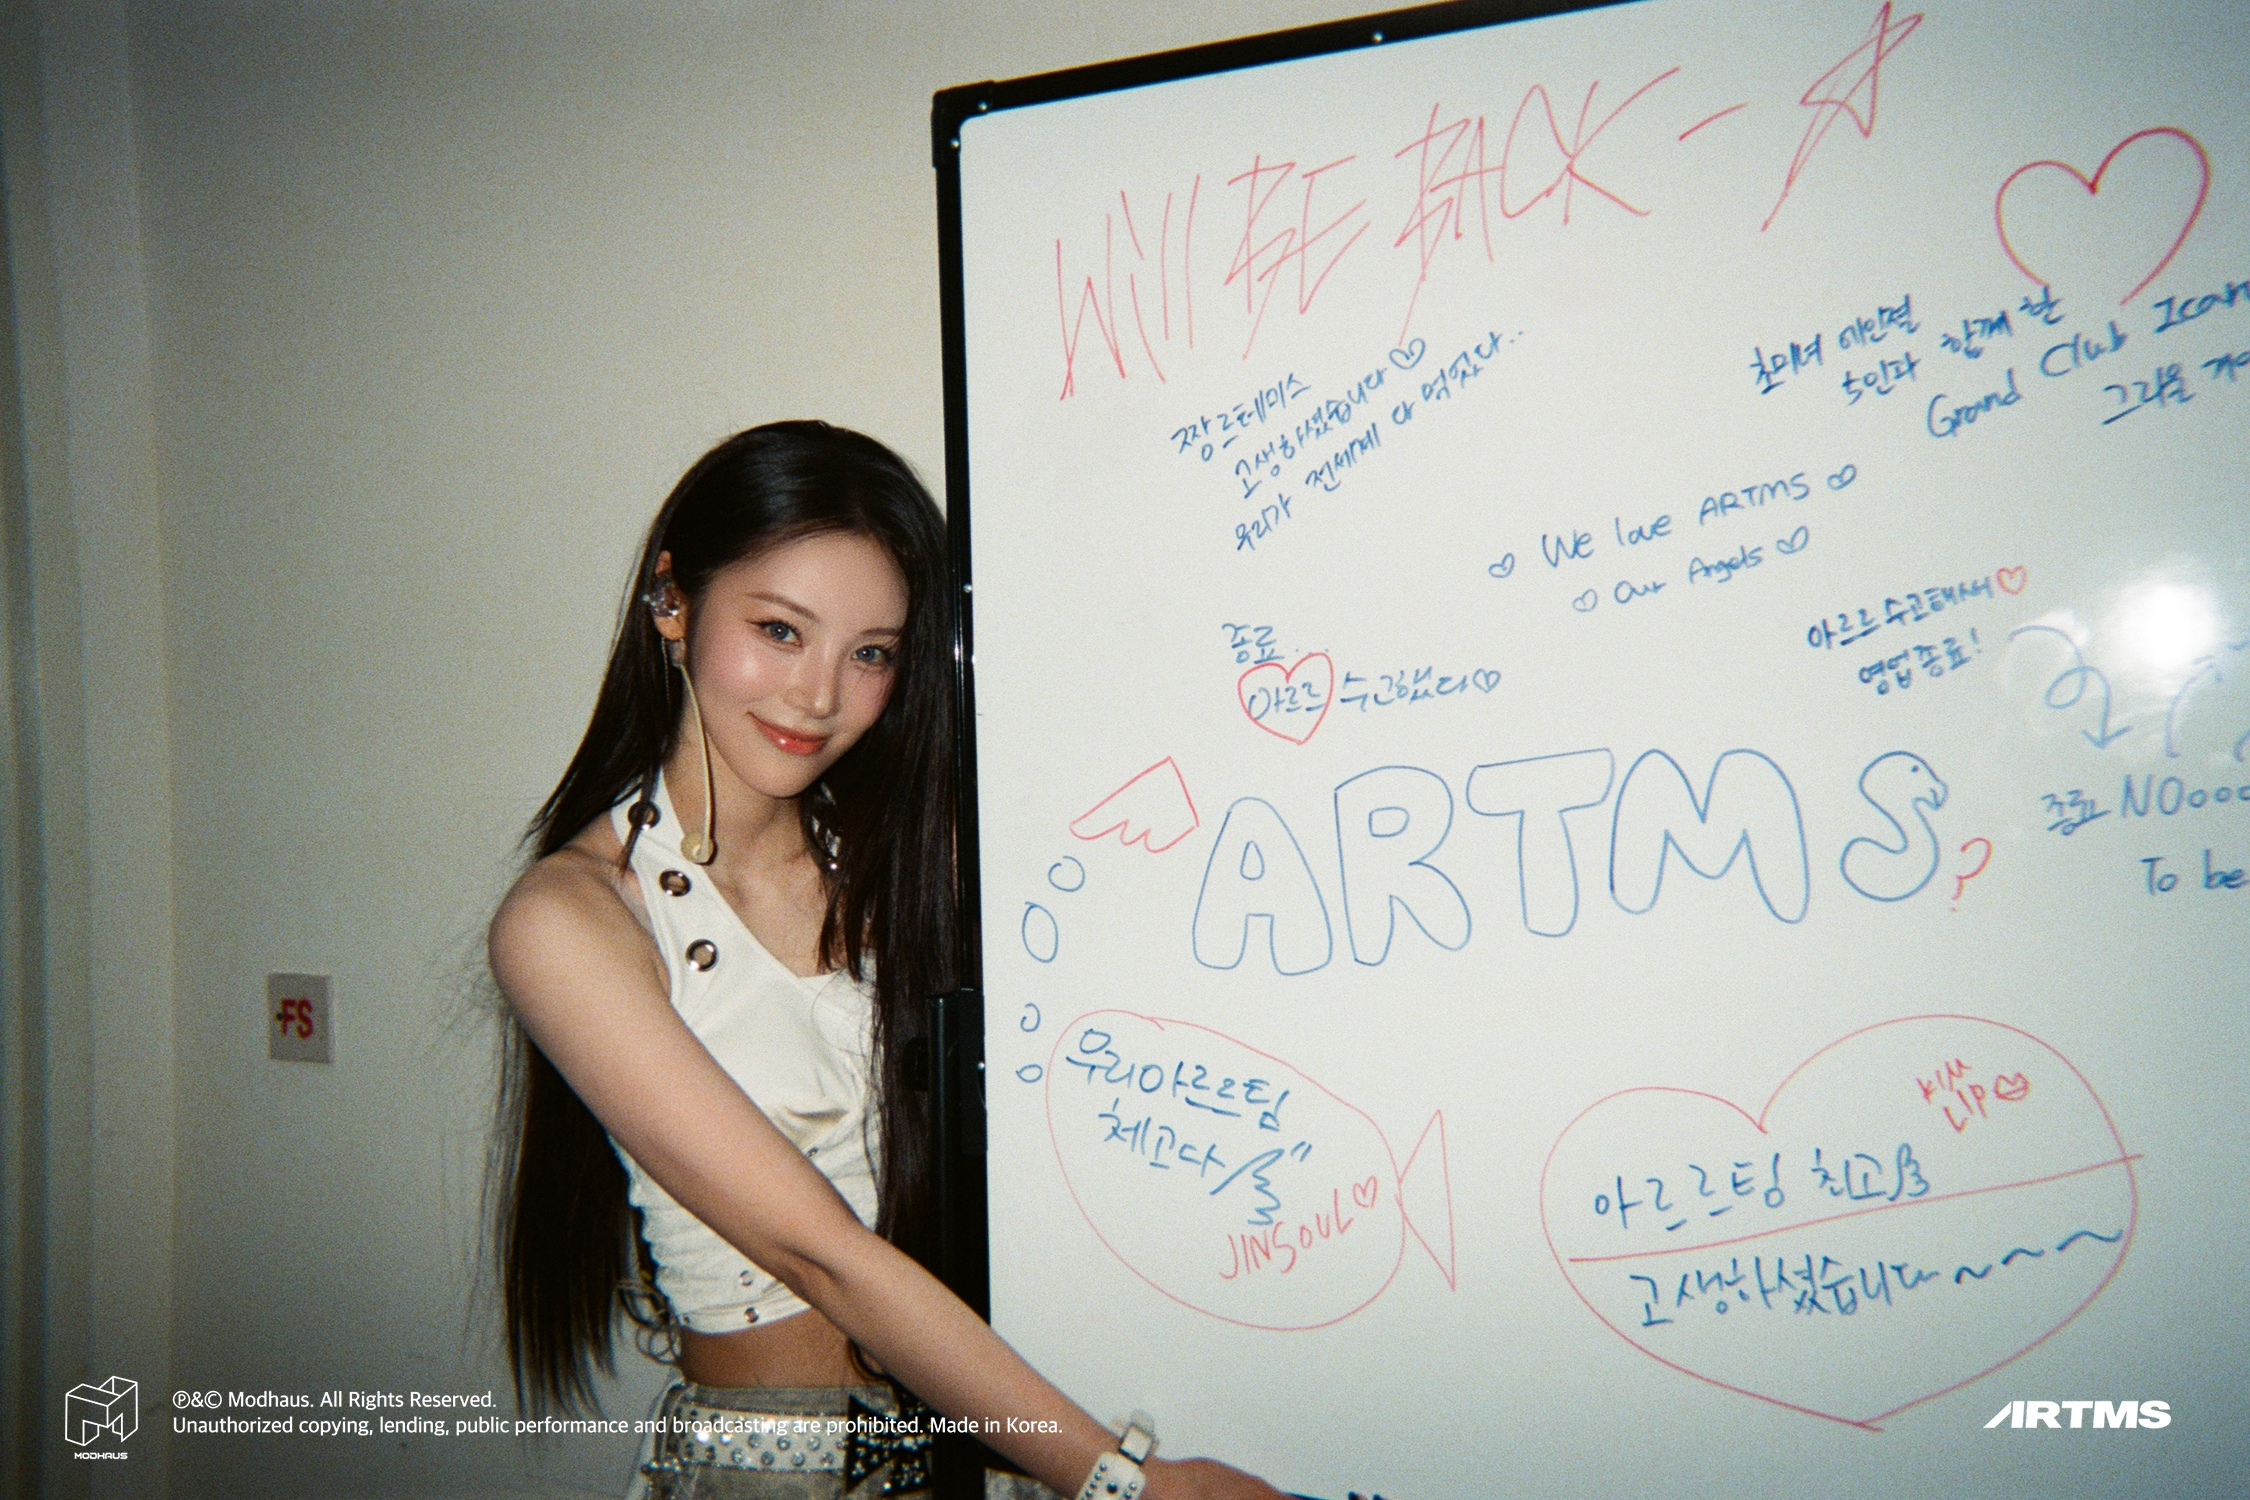 Will BE BACK -
짱르테미스
고생하셨습니다♡
우리가 전세계 다 먹었다..
초미녀 에인졀
5인과 함께 한
Grand Club Icar
그리울
♡ We love ARTMS ♡
♡ Our Angels ♡
종료...
아르르 수고했다♡
아르르 수고해써♡
영업종료!
ARTMS?
종료 NOooo
To be
우리아르르팀
체고다
JINSOUL♡
KIM
LIP
아르르팀 최고
고생하셨습니다~~~
FS
MODHAUS
℗&© Modhaus. All Rights Reserved.
Unauthorized copying, lending, public performance and broadcasting are prohibited. Made in Korea.
ARTMS